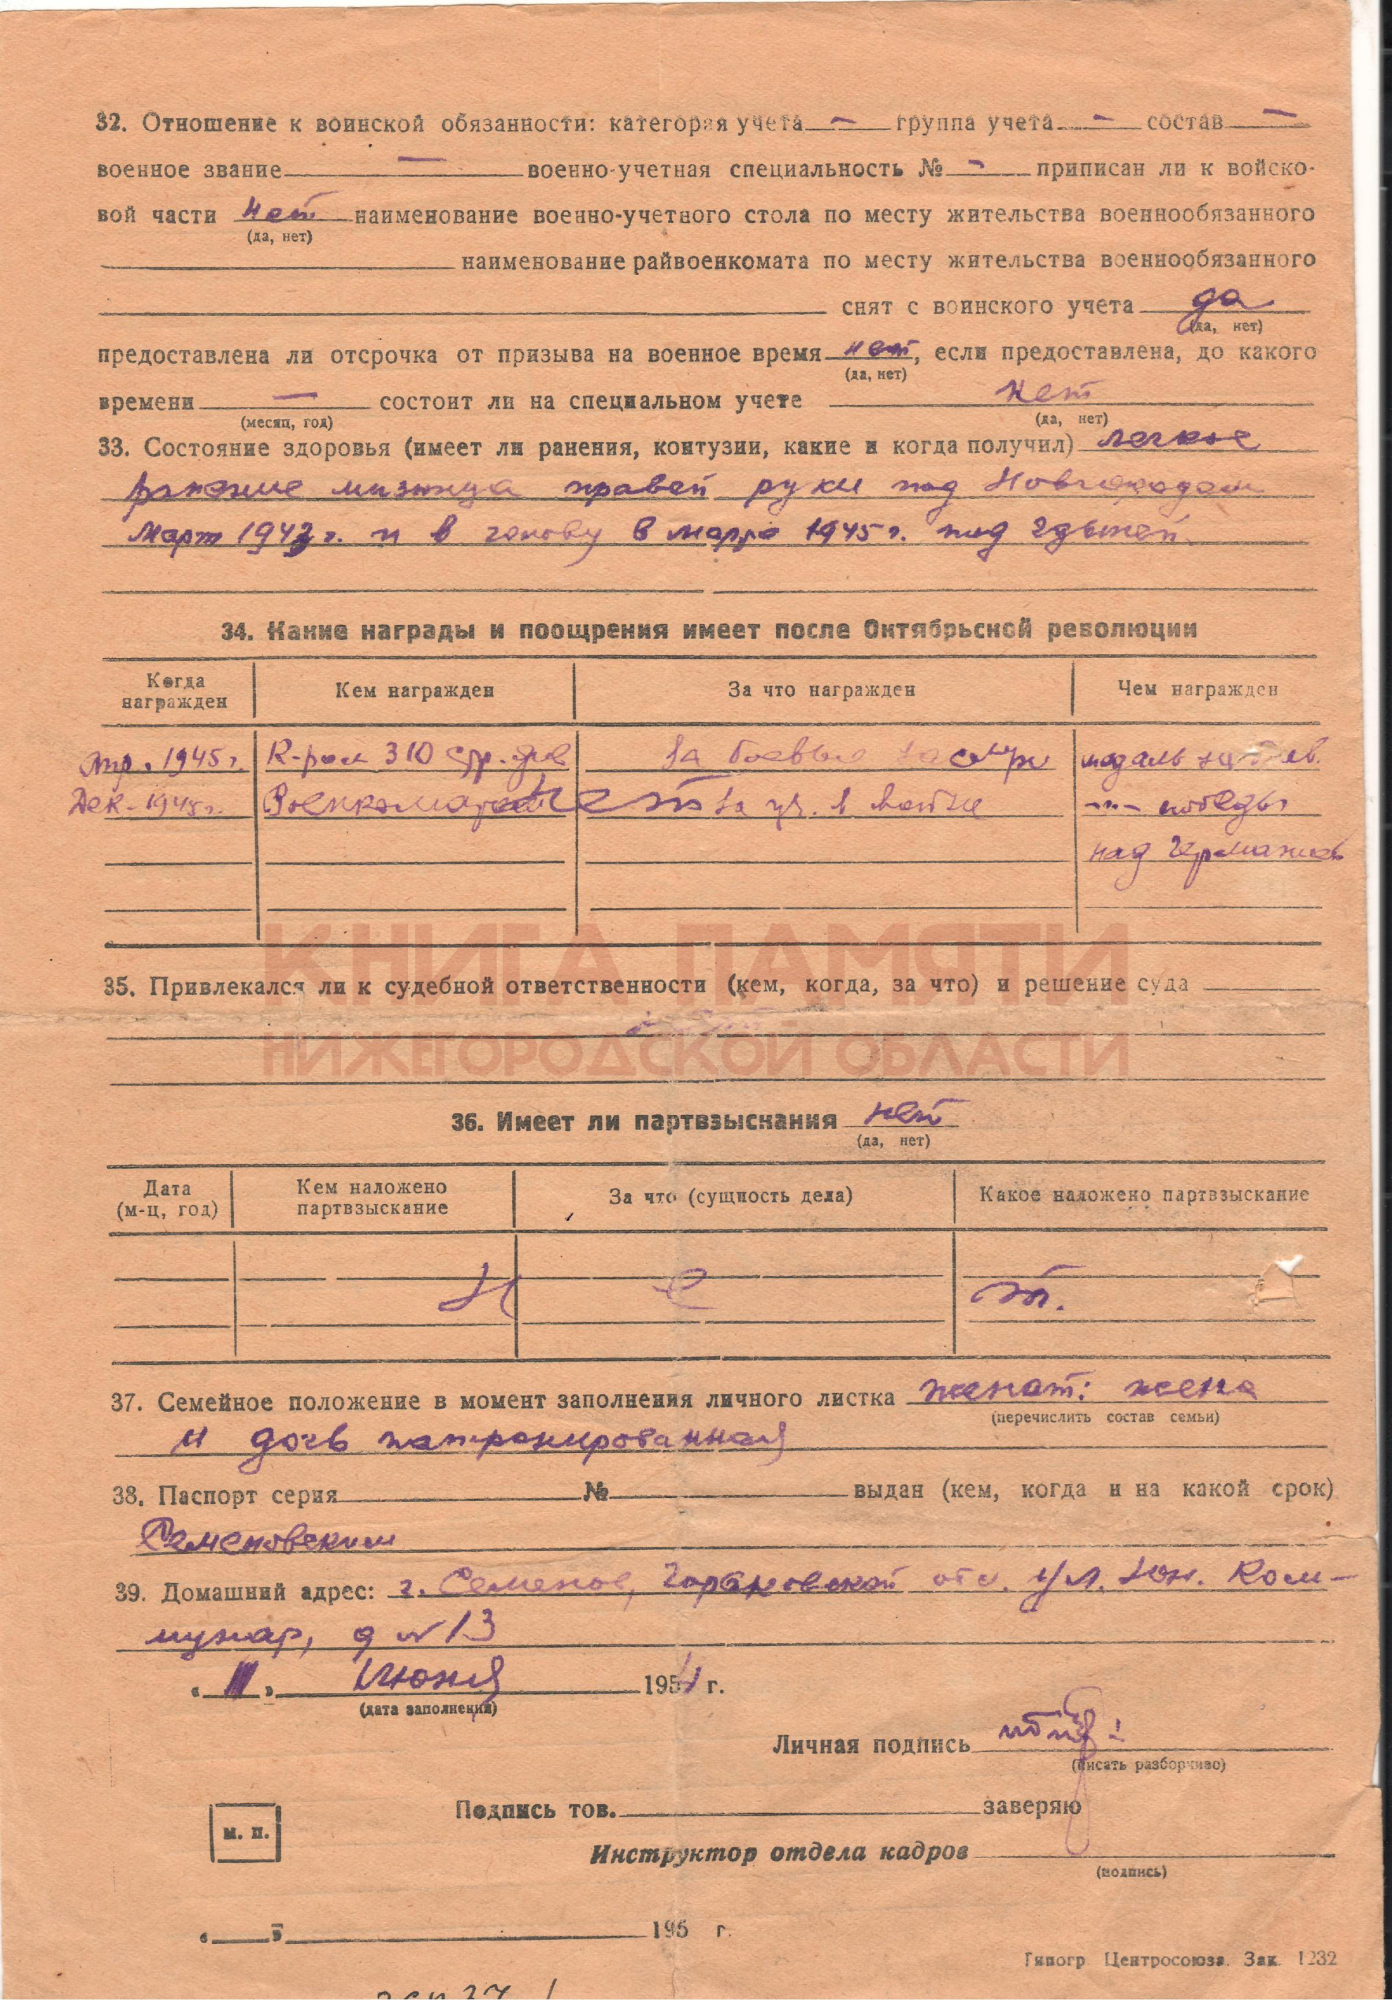 32. Отношение к воинской обязанности: категория учета — группа учета — состав —
военное звание — военно-учетная специальность № — приписан ли к войско-
вой части нет наименование военно-учетного стола по месту жительства военнообязанного
(да, нет)
наименование райвоенкомата по месту жительства военнообязанного
снят с воинского учета да
(да, нет)
предоставлена ли отсрочка от призыва на военное время нет, если предоставлена, до какого
(да, нет)
времени — состоит ли на специальном учете нет
(месяц, год) (да, нет)
33. Состояние здоровья (имеет ли ранения, контузии, какие и когда получил) легкое
ранение мизинца правой руки под Новгородом
март 1943 г. и в голову в марте 1945 г. под Гдыней
34. Какие награды и поощрения имеет после Октябрьской революции
Когда награжден Кем награжден За что награжден Чем награжден
апр. 1945 г. К-ром 310 стр. див за боевые заслуги медаль за
Дек. 1945 г. Военкоматом за уч. в войне -"- победы
над Германией
КНИГА ПАМЯТИ
35. Привлекался ли к судебной ответственности (кем, когда, за что) и решение суда
НИЖЕГОРОДСКОЙ ОБЛАСТИ
36. Имеет ли партвзыскания нет
(да, нет)
Дата (м-ц, год) Кем наложено партвзыскание За что (сущность дела) Какое наложено партвзыскание
Н е т.
37. Семейное положение в момент заполнения личного листка женат: жена
(перечислить состав семьи)
и дочь патронированная
38. Паспорт серия № выдан (кем, когда и на какой срок)
Семеновским
39. Домашний адрес: г. Семенов, Горьковской обл. ул. Юн. Ком-
мунар, д №13
« » июня 1954 г.
(дата заполнения)
Личная подпись
(писать разборчиво)
Подпись тов. заверяю
м. п.
Инструктор отдела кадров
(подпись)
« » 195 г.
Типогр Центросоюза. Зак. 1232